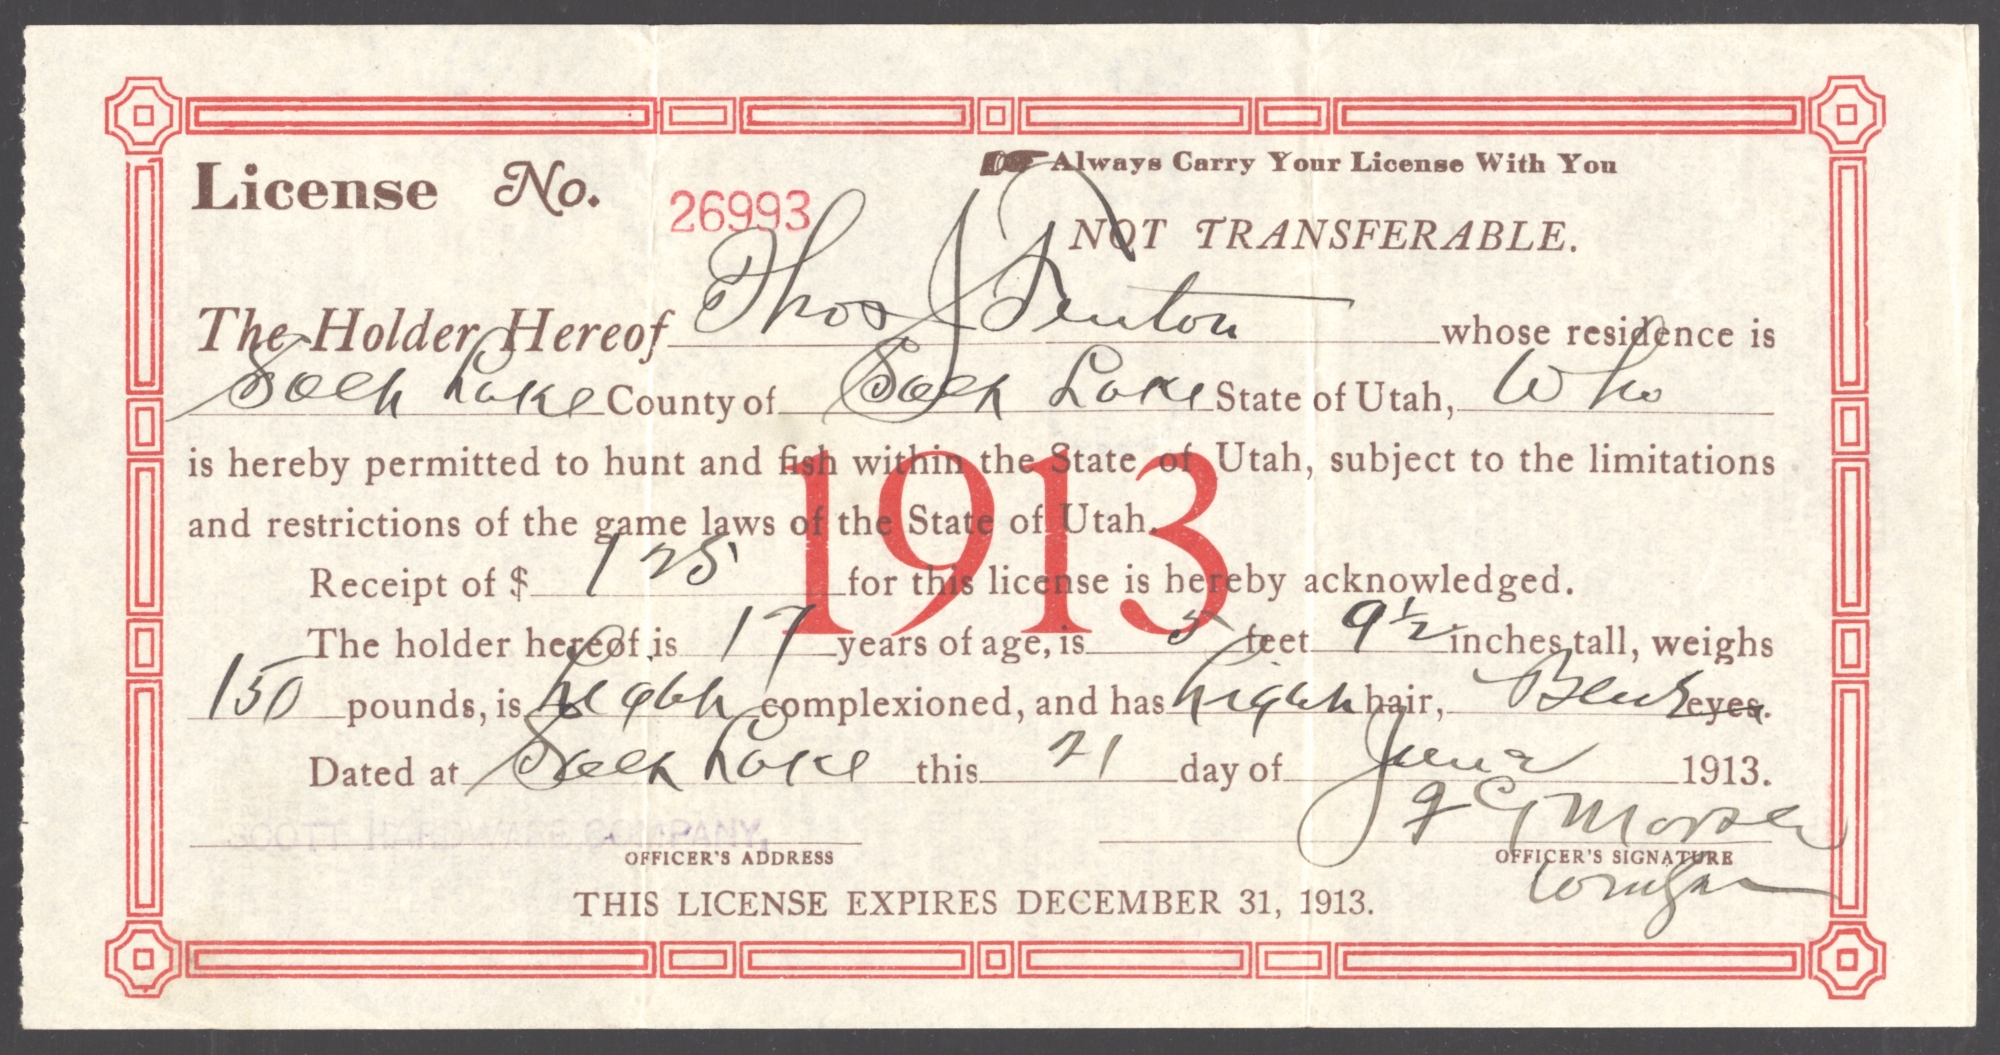 License No. 26993
Always Carry Your License With You
NOT TRANSFERABLE.
The Holder Hereof Thos J Fenton whose residence is
Salt Lake County of Salt Lake State of Utah, Who
is hereby permitted to hunt and fish within the State of Utah, subject to the limitations
and restrictions of the game laws of the State of Utah.
1913
Receipt of $ 1 25 for this license is hereby acknowledged.
The holder hereof is 17 years of age, is 5 feet 9 1/2 inches tall, weighs
150 pounds, is light complexioned, and has light hair, Blue eyes.
Dated at Salt Lake this 21 day of June 1913.
SCOTT HARDWARE COMPANY,
OFFICER'S ADDRESS
OFFICER'S SIGNATURE
THIS LICENSE EXPIRES DECEMBER 31, 1913.